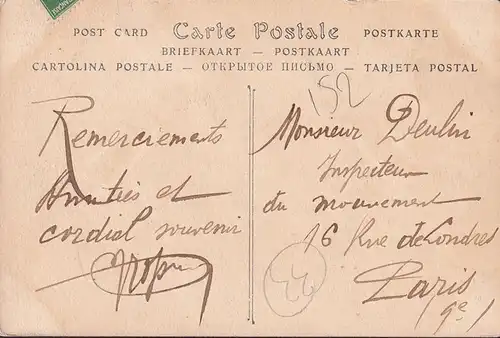 POST CARD Carte Postale POSTKARTE
BRIEFKAART — POSTKAART
CARTOLINA POSTALE — ОТКРЫТОЕ ПИСЬМО — TARJETA POSTAL
152
Remerciements
Amitiés et
cordial souvenir
Monsieur Deulin
Inspecteur
du mouvement
16 Rue de Londres
Paris
9e
22